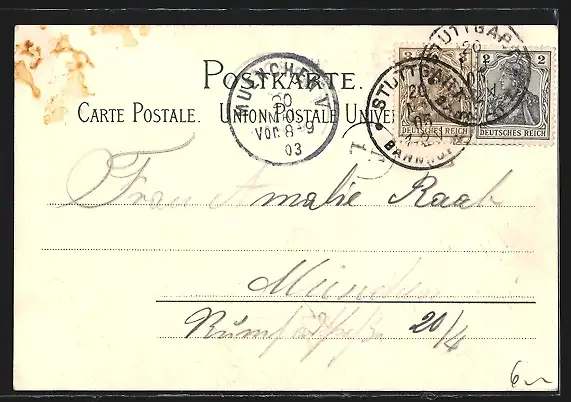 POSTKARTE.
CARTE POSTALE. UNION POSTALE UNIVE
MUENCHEN V.
20
VOR 8-9
03
STUTTGART
20
STUTTGART
20
05
BAHNHOF
3
DEUTSCHES REICH
2 2
DEUTSCHES REICH
Frau Amalie Raab
München
20/4
6